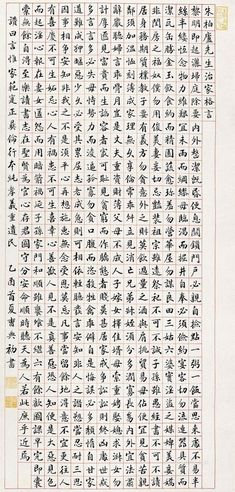 朱柏廬先生治家格言
黎明即起灑掃庭除要內外整潔既昏便息關鎖門戶必親自檢點一粥一飯當思來處不易半
絲半縷恆念物力維艱宜未雨而綢繆毋臨渴而掘井自奉必須儉約宴客切勿留連器具質而
潔瓦缶勝金玉飲食約而精園蔬愈珍饈勿營華屋勿謀良田三姑六婆實淫盜之媒婢美妾嬌
非閨房之福奴僕勿用俊美妻妾切忌豔妝祖宗雖遠祭祀不可不誠子孫雖愚經書不可不讀
居身務期質樸教子要有義方勿貪意外之財勿飲過量之酒與肩挑貿易毋佔便宜見貧苦親
鄰須加溫恤刻薄成家理無久享倫常乖舛立見消亡兄弟叔姪須分多潤寡長幼內外宜法肅
辭嚴聽婦言乖骨肉豈是丈夫重資財薄父母不成人子嫁女擇佳婿毋索重聘娶媳求淑女勿
計厚奩見富貴而生諂容者最可恥遇貧窮而作驕態者賤莫甚居家戒爭訟訟則終凶處世戒
多言言多必失毋恃勢力而凌逼孤寡勿貪口腹而恣殺牲禽乖僻自是悔誤必多頹惰自甘家
道難成狎暱惡少久必受其累屈志老成急則可相依輕聽發言安知非人之譖愬當忍耐三思
因事相爭安知非我之不是須平心再想施惠無念受恩莫忘凡事當留餘地得意不宜再往人
有喜慶不可生妒忌心人有禍患不可生喜幸心善欲人見不是真善惡恐人知便是大惡見色
而起淫心報在妻女匿怨而用暗箭禍延子孫家門和順雖饔飧不繼亦有餘歡國課早完即囊
橐無餘自得至樂讀書志在聖賢為官心存君國守分安命順時聽天為人若此庶乎近焉
乙酉首夏曹典初書